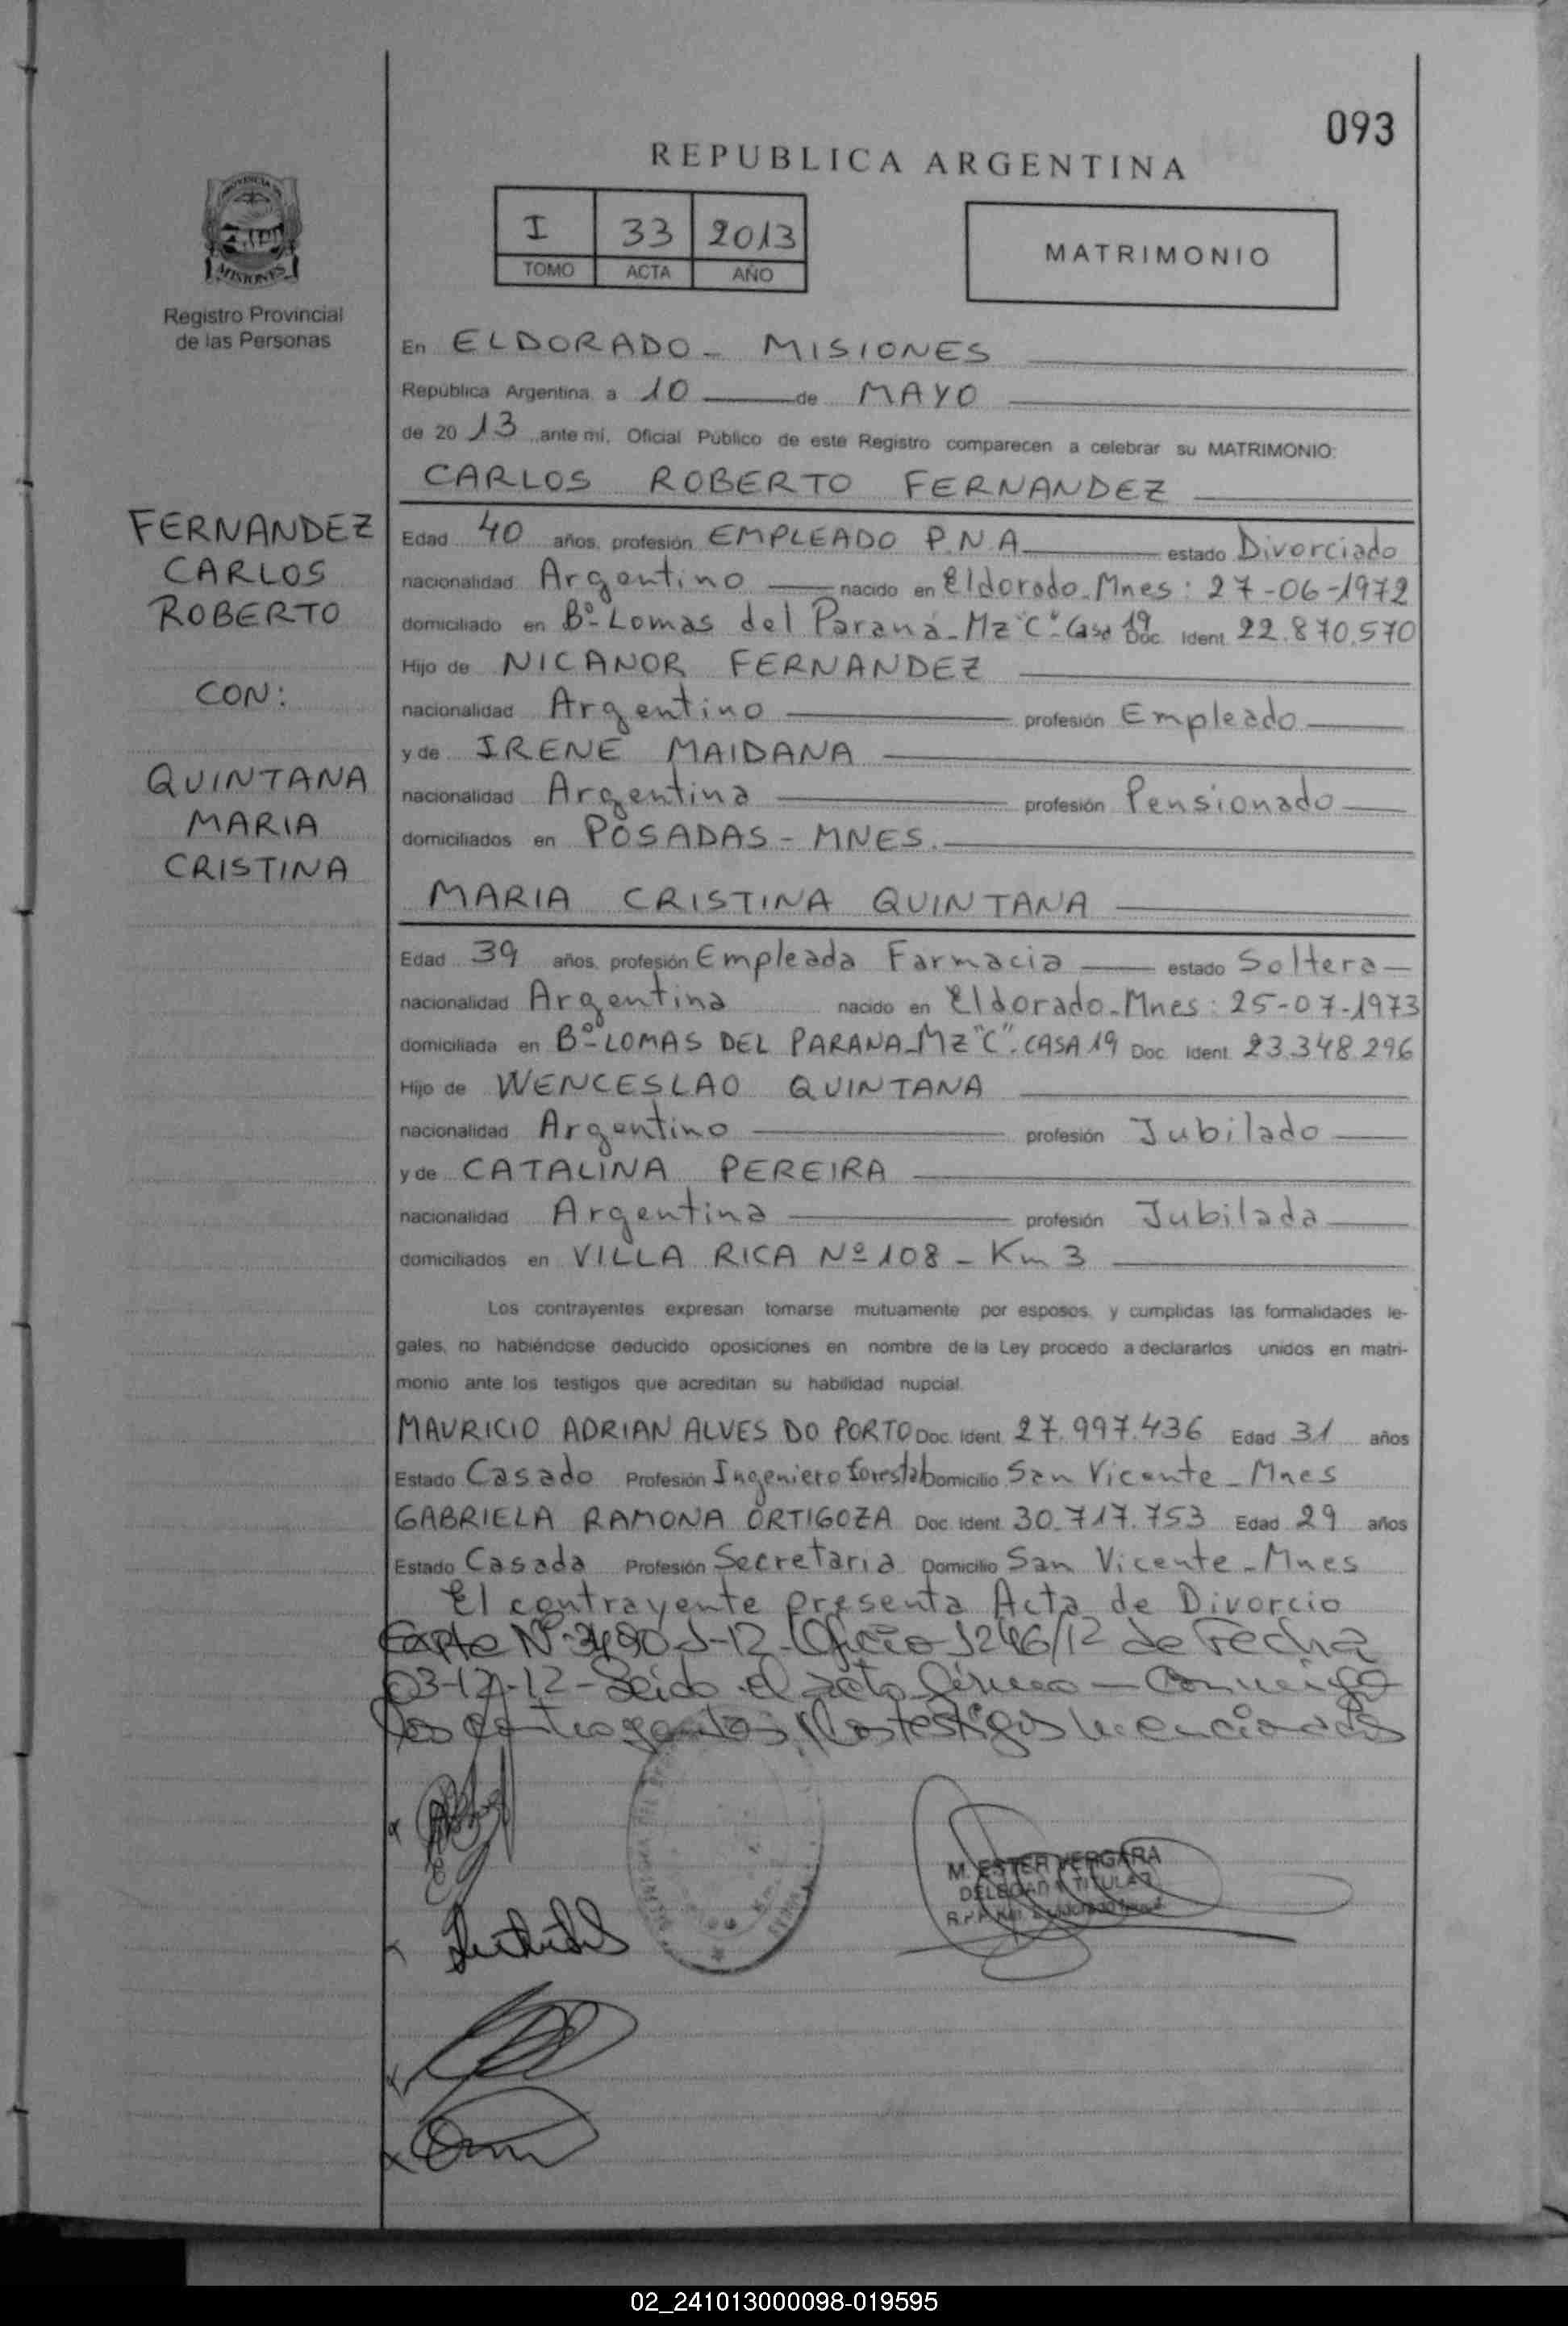 093
REPUBLICA ARGENTINA
PROVINCIA DE
MISIONES
Registro Provincial
de las Personas
I 33 2013
TOMO ACTA AÑO
MATRIMONIO
En ELDORADO - MISIONES
República Argentina a 10 de MAYO
de 20 13 ante mí, Oficial Público de este Registro comparecen a celebrar su MATRIMONIO:
CARLOS ROBERTO FERNANDEZ
FERNANDEZ
CARLOS
ROBERTO
CON:
QUINTANA
MARIA
CRISTINA
Edad 40 años, profesión EMPLEADO P.N.A estado Divorciado
nacionalidad Argentino nacido en Eldorado-Mnes: 27-06-1972
domiciliado en Bº-Lomas del Paraná-Mz"C"-Casa 19 Doc. Ident. 22.870.570
Hijo de NICANOR FERNANDEZ
nacionalidad Argentino profesión Empleado
y de IRENE MAIDANA
nacionalidad Argentina profesión Pensionado
domiciliados en POSADAS - MNES.
MARIA CRISTINA QUINTANA
Edad 39 años, profesión Empleada Farmacia estado Soltera
nacionalidad Argentina nacido en Eldorado-Mnes: 25-07-1973
domiciliada en Bº-LOMAS DEL PARANA-Mz"C"-CASA 19 Doc. Ident. 23.348.296
Hijo de WENCESLAO QUINTANA
nacionalidad Argentino profesión Jubilado
y de CATALINA PEREIRA
nacionalidad Argentina profesión Jubilada
domiciliados en VILLA RICA Nº 108 - Km 3
Los contrayentes expresan tomarse mutuamente por esposos, y cumplidas las formalidades le-
gales, no habiéndose deducido oposiciones en nombre de la Ley procedo a declararlos unidos en matri-
monio ante los testigos que acreditan su habilidad nupcial.
MAURICIO ADRIAN ALVES DO PORTO Doc. Ident. 27.997.436 Edad 31 años
Estado Casado Profesión Ingeniero forestal Domicilio San Vicente - Mnes
GABRIELA RAMONA ORTIGOZA Doc. Ident. 30.717.753 Edad 29 años
Estado Casada Profesión Secretaria Domicilio San Vicente - Mnes
El contrayente presenta Acta de Divorcio
Expte Nº 3490 J-12 - Oficio 1246/12 de Fecha
03-12-12 - Leido el acta firman conmigo
los contrayentes y los testigos mencionados
M. ESTER VERGARA
DELEGADA TITULAR
02_241013000098-019595